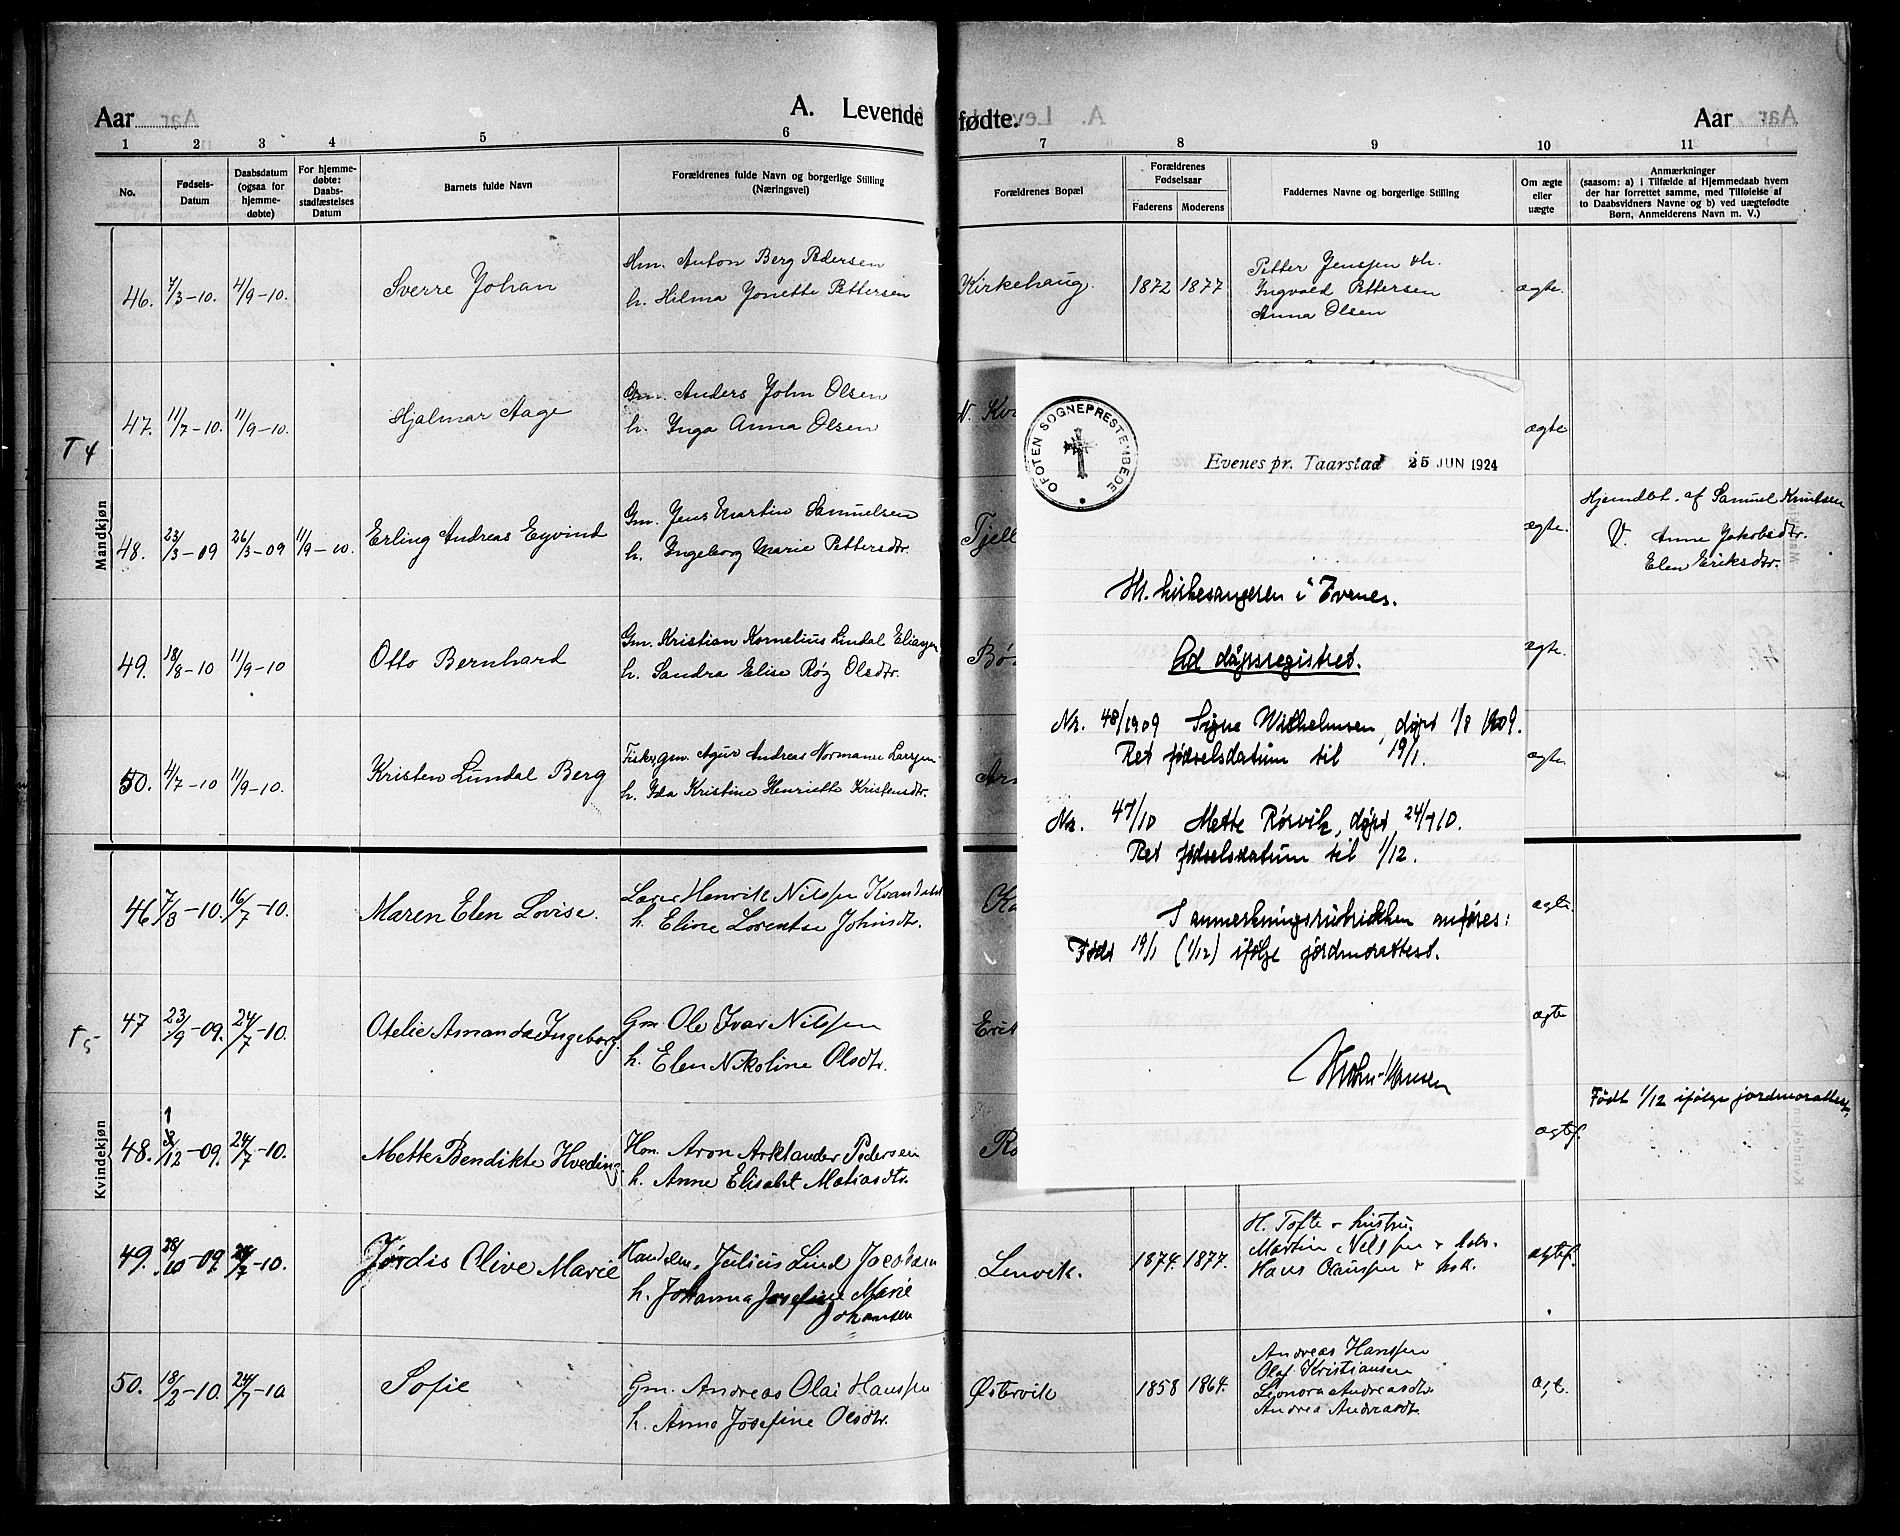 Aar
A. Levende
fødte.
Aar
1 2 3 4 5 6 7 8 9 10 11
No.
Fødsels-Datum
Daabsdatum (ogsaa for hjemme-døbte)
For hjemme-døbte: Daabs-stadfæstelses Datum
Barnets fulde Navn
Forældrenes fulde Navn og borgerlige Stilling (Næringsvei)
Forældrenes Bopæl
Forældrenes Fødselsaar
Faderens Moderens
Faddernes Navne og borgerlige Stilling
Om ægte eller uægte
Anmærkninger
(saasom: a) i Tilfælde af Hjemmedaab hvem
der har forrettet samme, med Tilføielse af
to Daabsvidners Navne og b) ved uægtefødte
Børn, Anmelderens Navn m. V.)
46. 7/3-10. 4/9-10. Sverre Johan
Gm. Anton Berg Pedersen
h. Hilma Jonette Pettersen
Kirkehaug. 1872 1877
Petter Jenssen
Ingvald Pettersen
Anna Olsen
ægte.
T 4
47. 11/7-10. 11/9-10. Hjalmar Aage
Gm. Anders John Olsen
h. Inga Anna Olsen
ægte
Mandkjøn
48. 23/3-09 26/3-09 11/9-10. Erling Andreas Eyvind
Gm. Jens Martin Samuelsen
h. Ingeborg Marie Pettersdtr.
Tjell
ægte.
Hjemdøbt. af Samuel Knutsen
V. Anne Jakobsdtr.
Elen Eriksdtr.
49. 18/8-10 11/9-10 Otto Bernhard
Gm. Kristian Kornelius Lindal Eliassen
h. Sandra Elise Røz Olsdtr.
ægte.
50. 4/7-10 11/9-10. Kristen Lundal Berg
Fisker, gm. Agur Andreas Normann Larssen
h. Ida Kristine Henriette Kristensdtr.
ægte.
46 7/3-10. 16/7-10. Maren Elen Lovise.
Lærer Henrik Nilssen Kvandahl
h. Eline Lorentse Johnsdtr.
ægte.
T 5
47 23/9-09. 24/7-10. Otelie Amanda Ingeborg.
Gm. Ole Ivar Nilssen
h. Elen Nikoline Olsdtr.
ægte
Kvindekjøn
1
48. 3/12-09. 24/7-10. Mette Bendikte Hveding
Hm. Aron Arktander Pedersen
h. Anne Elisabet Matiasdtr.
Født 1/12 ifølge jordmorattest.
49. 28/10-09. 24/7-10. Jørdis Olive Marie
Handelsm. Julius Lind Jacobsen
h. Johanna Josefine Marie
Johansen
Lenvik. 1874. 1877.
H. Tofte + hustru.
Martin Nilssen
Hans Olaussen
50. 18/2-10. 24/7-10 Sofie
Gm. Andreas Olai Hanssen
h. Anna Josefine Olsdtr.
Østervik 1858 1864.
Andreas Hanssen
Olaf Kristiansen
Leonora Andreasdtr.
Andrea Andreasdtr.
OFOTEN SOGNEPRESTEMBEDE
Evenes pr. Taarstad 25 JUN 1924
Hr. kirkesangeren i Evenes.
Ad dåpsregistret.
Nr. 48/1909 Signe Wilhelmsen, døpt 1/8 1909.
Ret fødselsdatum til 19/1.
Nr. 47/10 Mette Rørvik, døpt 24/7 10.
Ret fødselsdatum til 1/12.
I anmerkningsrubrikken anføres:
Født 19/1 (1/12) ifølge jordmorattest.